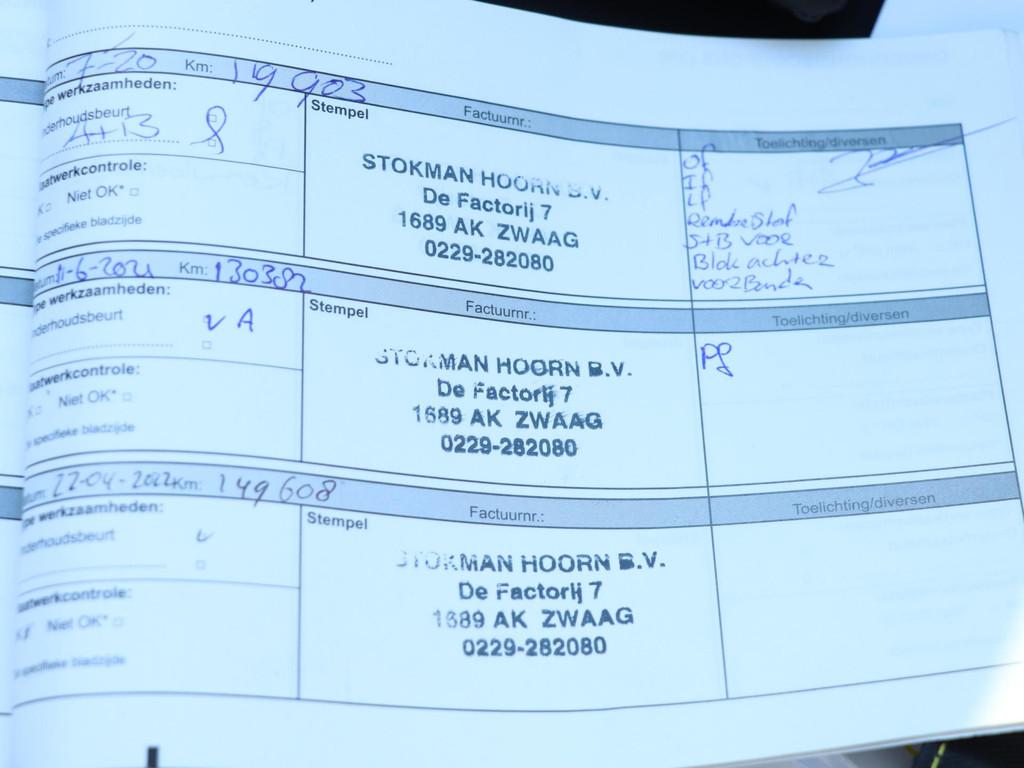 7-20 Km: 119 903
pe werkzaamheden:
nderhoudsbeurt
4+13
aatwerkcontrole:
Niet OK*
e specifieke bladzijde
Stempel Factuurnr.:
STOKMAN HOORN B.V.
De Factorij 7
1689 AK ZWAAG
0229-282080
Toelichting/diversen
OF
IF
LF
Remblok Stof
S+B voor
Blok achter
voor Banden
11-6-2021 Km: 130382
pe werkzaamheden:
nderhoudsbeurt
A
aatwerkcontrole:
Niet OK*
e specifieke bladzijde
Stempel Factuurnr.:
STOKMAN HOORN B.V.
De Factorij 7
1689 AK ZWAAG
0229-282080
Toelichting/diversen
22-04-2022 Km: 149 608
pe werkzaamheden:
nderhoudsbeurt
aatwerkcontrole:
Niet OK*
e specifieke bladzijde
Stempel Factuurnr.:
STOKMAN HOORN B.V.
De Factorij 7
1689 AK ZWAAG
0229-282080
Toelichting/diversen